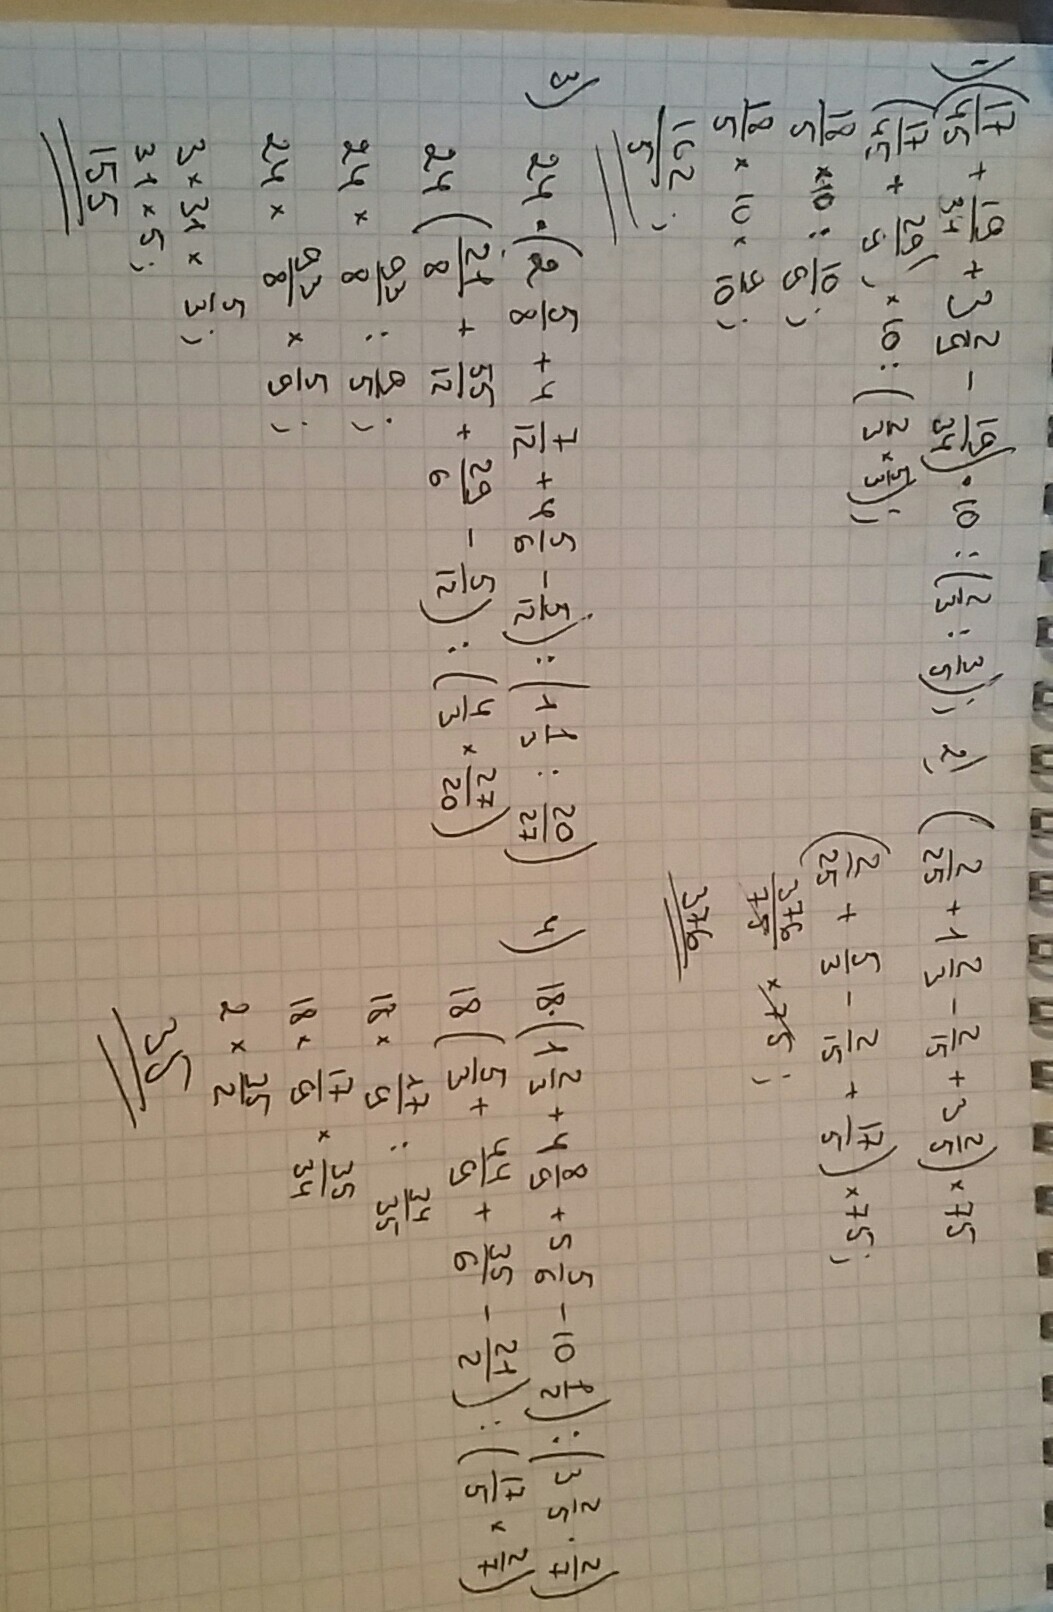 1) (17/45 + 19/34 + 3 2/9 - 19/34) · 10 : (2/3 : 3/5);
(17/45 + 29/9) × 10 : (2/3 × 5/3);
18/5 × 10 : 10/9;
18/5 × 10 × 9/10;
162/5;
2) (2/25 + 1 2/3 - 2/15 + 3 2/5) × 75
(2/25 + 5/3 - 2/15 + 17/5) × 75;
376/75 × 75;
376
3) 24 · (2 5/8 + 4 7/12 + 4 5/6 - 5/12) : (1 1/3 : 20/27)
24 (21/8 + 55/12 + 29/6 - 5/12) : (4/3 × 27/20)
24 × 93/8 : 9/5;
24 × 93/8 × 5/9;
3 × 31 × 5/3;
31 × 5;
155
4) 18 · (1 2/3 + 4 8/9 + 5 5/6 - 10 1/2) : (3 2/5 · 2/7)
18 (5/3 + 44/9 + 35/6 - 21/2) : (17/5 × 2/7)
18 × 17/9 : 34/35
18 × 17/9 × 35/34
2 × 35/2
35